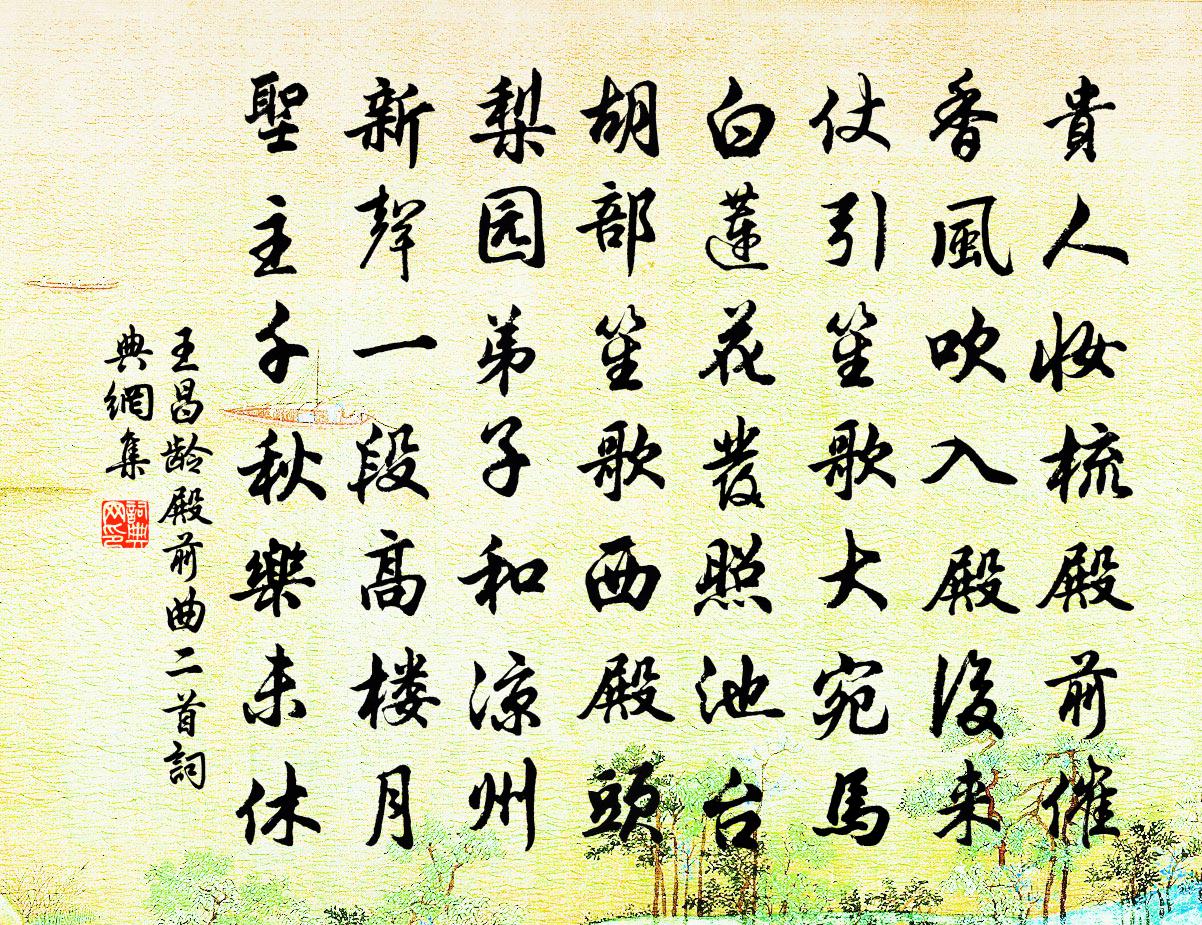 貴人妝梳殿前催
香風吹入殿後来
仗引笙歌大宛馬
白蓮花發照池台
胡部笙歌西殿頭
梨园弟子和涼州
新聲一段高楼月
聖主千秋樂未休
王昌齡殿前曲二首詞
典網集
詞典网印